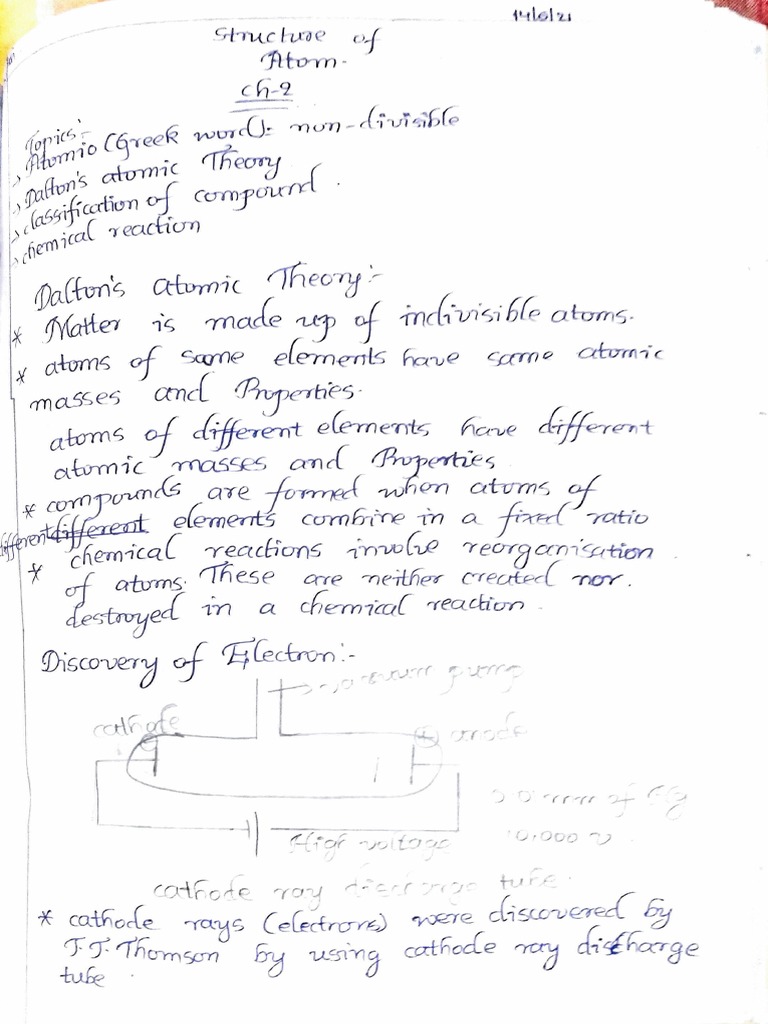 14/6/21
Structure of
Atom.
Ch-2
Topics:-
> Atomio (Greek word): non-divisible
> Dalton's atomic Theory
> classification of compound.
> chemical reaction
Dalton's atomic Theory:-
* Matter is made up of indivisible atoms.
* atoms of same elements have same atomic
masses and Properties.
atoms of different elements have different
atomic masses and Properties
* compounds are formed when atoms of
different different elements combine in a fixed ratio
* chemical reactions involve reorganisation
of atoms. These are neither created nor.
destroyed in a chemical reaction.
Discovery of Electron:-
pump
cathode
anode
of Hg
High voltage 10,000 v
cathode ray discharge tube.
* cathode rays (electrons) were discovered by
J.J. Thomson by using cathode ray discharge
tube.